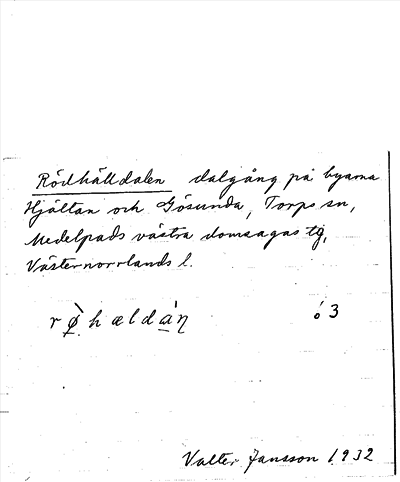 Rödhälldalen dalgång på byarna
Hjältan och Gösunda, Torps sn,
Medelpads västra domsagas tg,
Västernorrlands l.
rø̀hældáŋ
3
Valter Jansson 1932